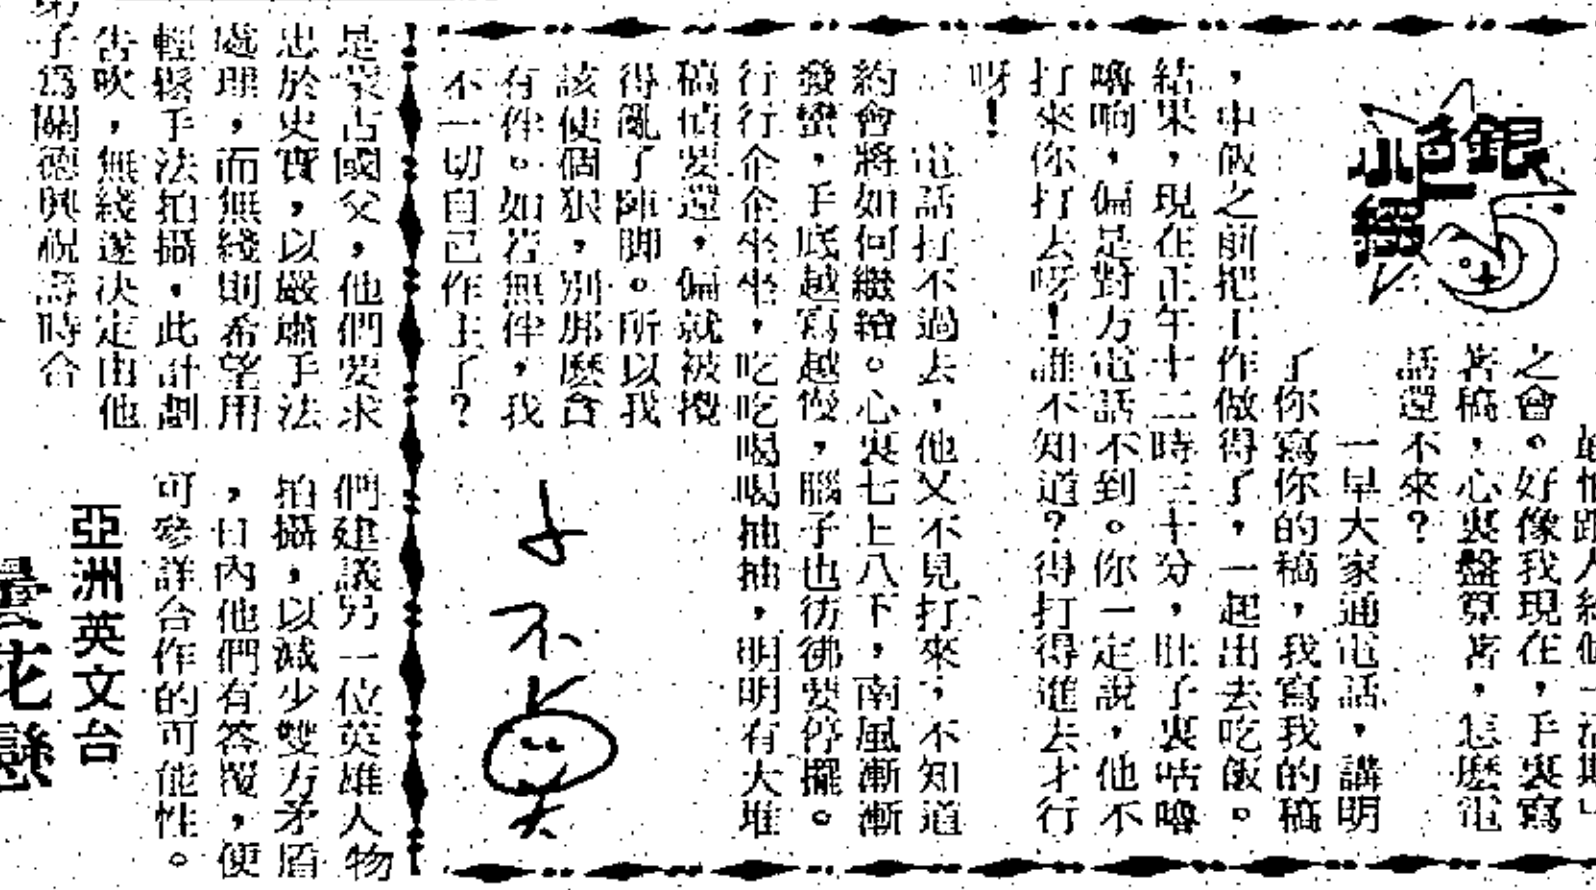 銀色小擇
之會。好像我現在，手裏寫
著稿，心裏盤算著，怎麼電
話還不來？
一早大家通電話，講明
了你寫你的稿，我寫我的稿
，中飯之前把工作做得了，一起出去吃飯。
結果，現在正午十二時三十分，肚子裏咕嚕
嚕响，偏是對方電話不到。你一定說，他不
打來你打去呀！誰不知道？得打得進去才行
呀！
電話打不過去，他又不見打來，不知道
約會將如何繼續。心裏七上八下，南風漸漸
發蠻，手底越寫越慢，腦子也彷彿要停擺。
行行企企坐坐，吃吃喝喝抽抽，明明有大堆
稿債要還，偏就被攪
得亂了陣脚。所以我
該使個狠，別那麼貪
有伴。如若無伴，我
不一切自己作主了？
是蒙古國父，他們要求
忠於史實，以嚴肅手法
處理，而無綫則希望用
輕鬆手法拍攝，此計劃
告吹，無綫遂決定由他
們建議另一位英雄人物
拍攝，以減少雙方矛盾
，日內他們有答覆，便
可參詳合作的可能性。
亞洲英文台
花戀
子為關德興祝壽時合